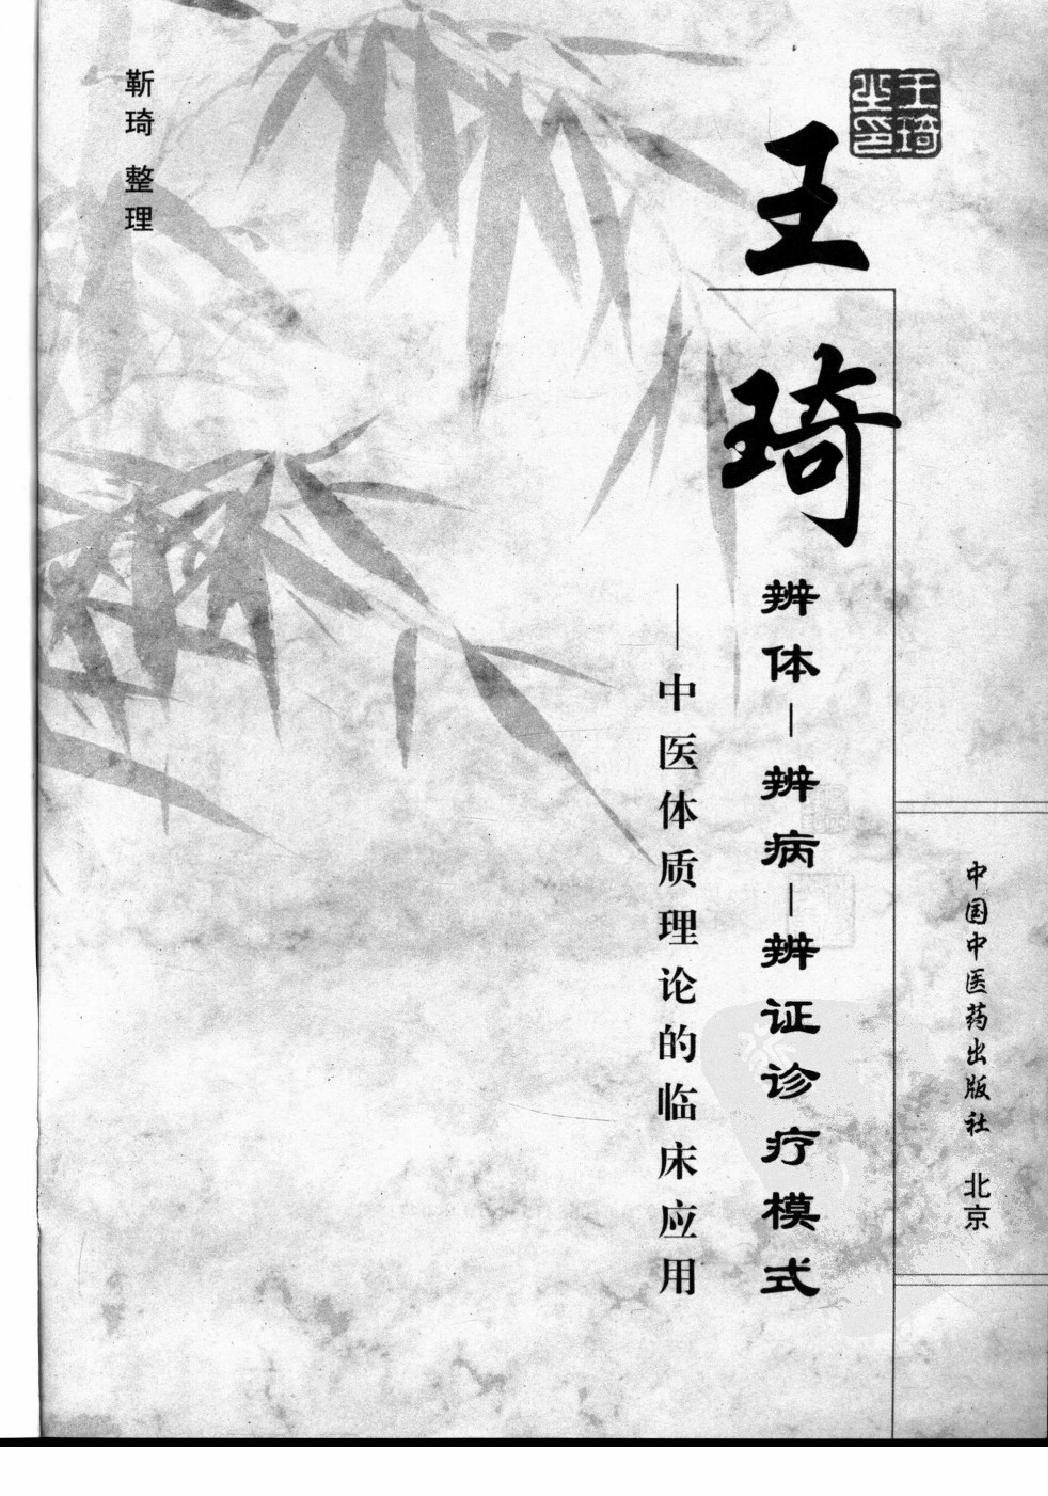 王琦之印
王琦
辨体—辨病—辨证诊疗模式
——中医体质理论的临床应用
靳琦 整理
中国中医药出版社 北京